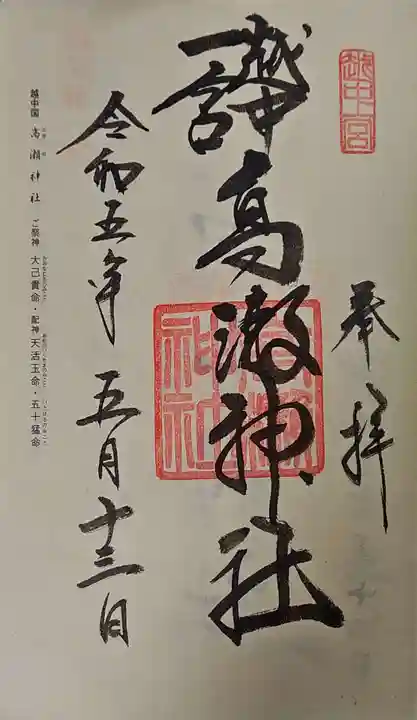 越中宮
奉拝
越中
一宮
高瀬神社
高瀬神社
令和五年 五月十三日
越中国 高瀬神社 ご祭神 大己貴命・配神 天活玉命・五十猛命